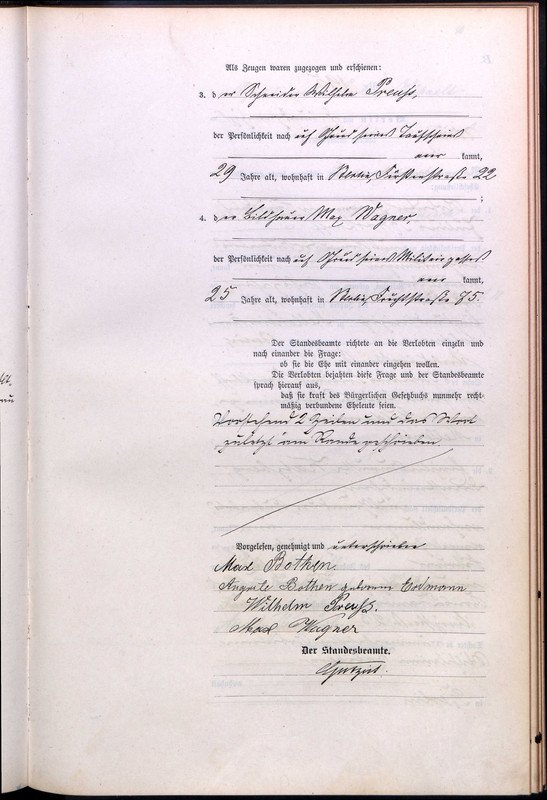 Als Zeugen waren zugezogen und erschienen:
3. d er Schneider Wilhelm Preuß,
der Persönlichkeit nach auf Grund seines Taufscheins
aner kannt,
29 Jahre alt, wohnhaft in Berlin, Fürstenstraße 22
;
4. d er Bildhauer Max Wagner,
der Persönlichkeit nach auf Grund seines Militärpasses
aner kannt,
25 Jahre alt, wohnhaft in Berlin, Fruchtstraße 75.
Der Standesbeamte richtete an die Verlobten einzeln und
nach einander die Frage:
ob sie die Ehe mit einander eingehen wollen.
Die Verlobten bejahten diese Frage und der Standesbeamte
sprach hierauf aus,
daß sie kraft des Bürgerlichen Gesetzbuchs nunmehr recht-
mäßig verbundene Eheleute seien.
Vorstehend 2 Zeilen und das Wort
zuletzt am Rande geschrieben.
Vorgelesen, genehmigt und unterschrieben
Max Bothen
Auguste Bothen geborene Erdmann
Wilhelm Preuß.
Max Wagner
Der Standesbeamte.